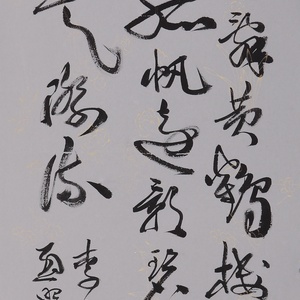 辞黄鹤楼
孤帆远影碧
天际流
李